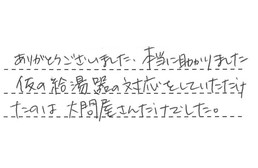 ありがとうございました、本当に助かりました
仮の給湯器の対応をしていただけ
たのは 大問屋さんだけでした。